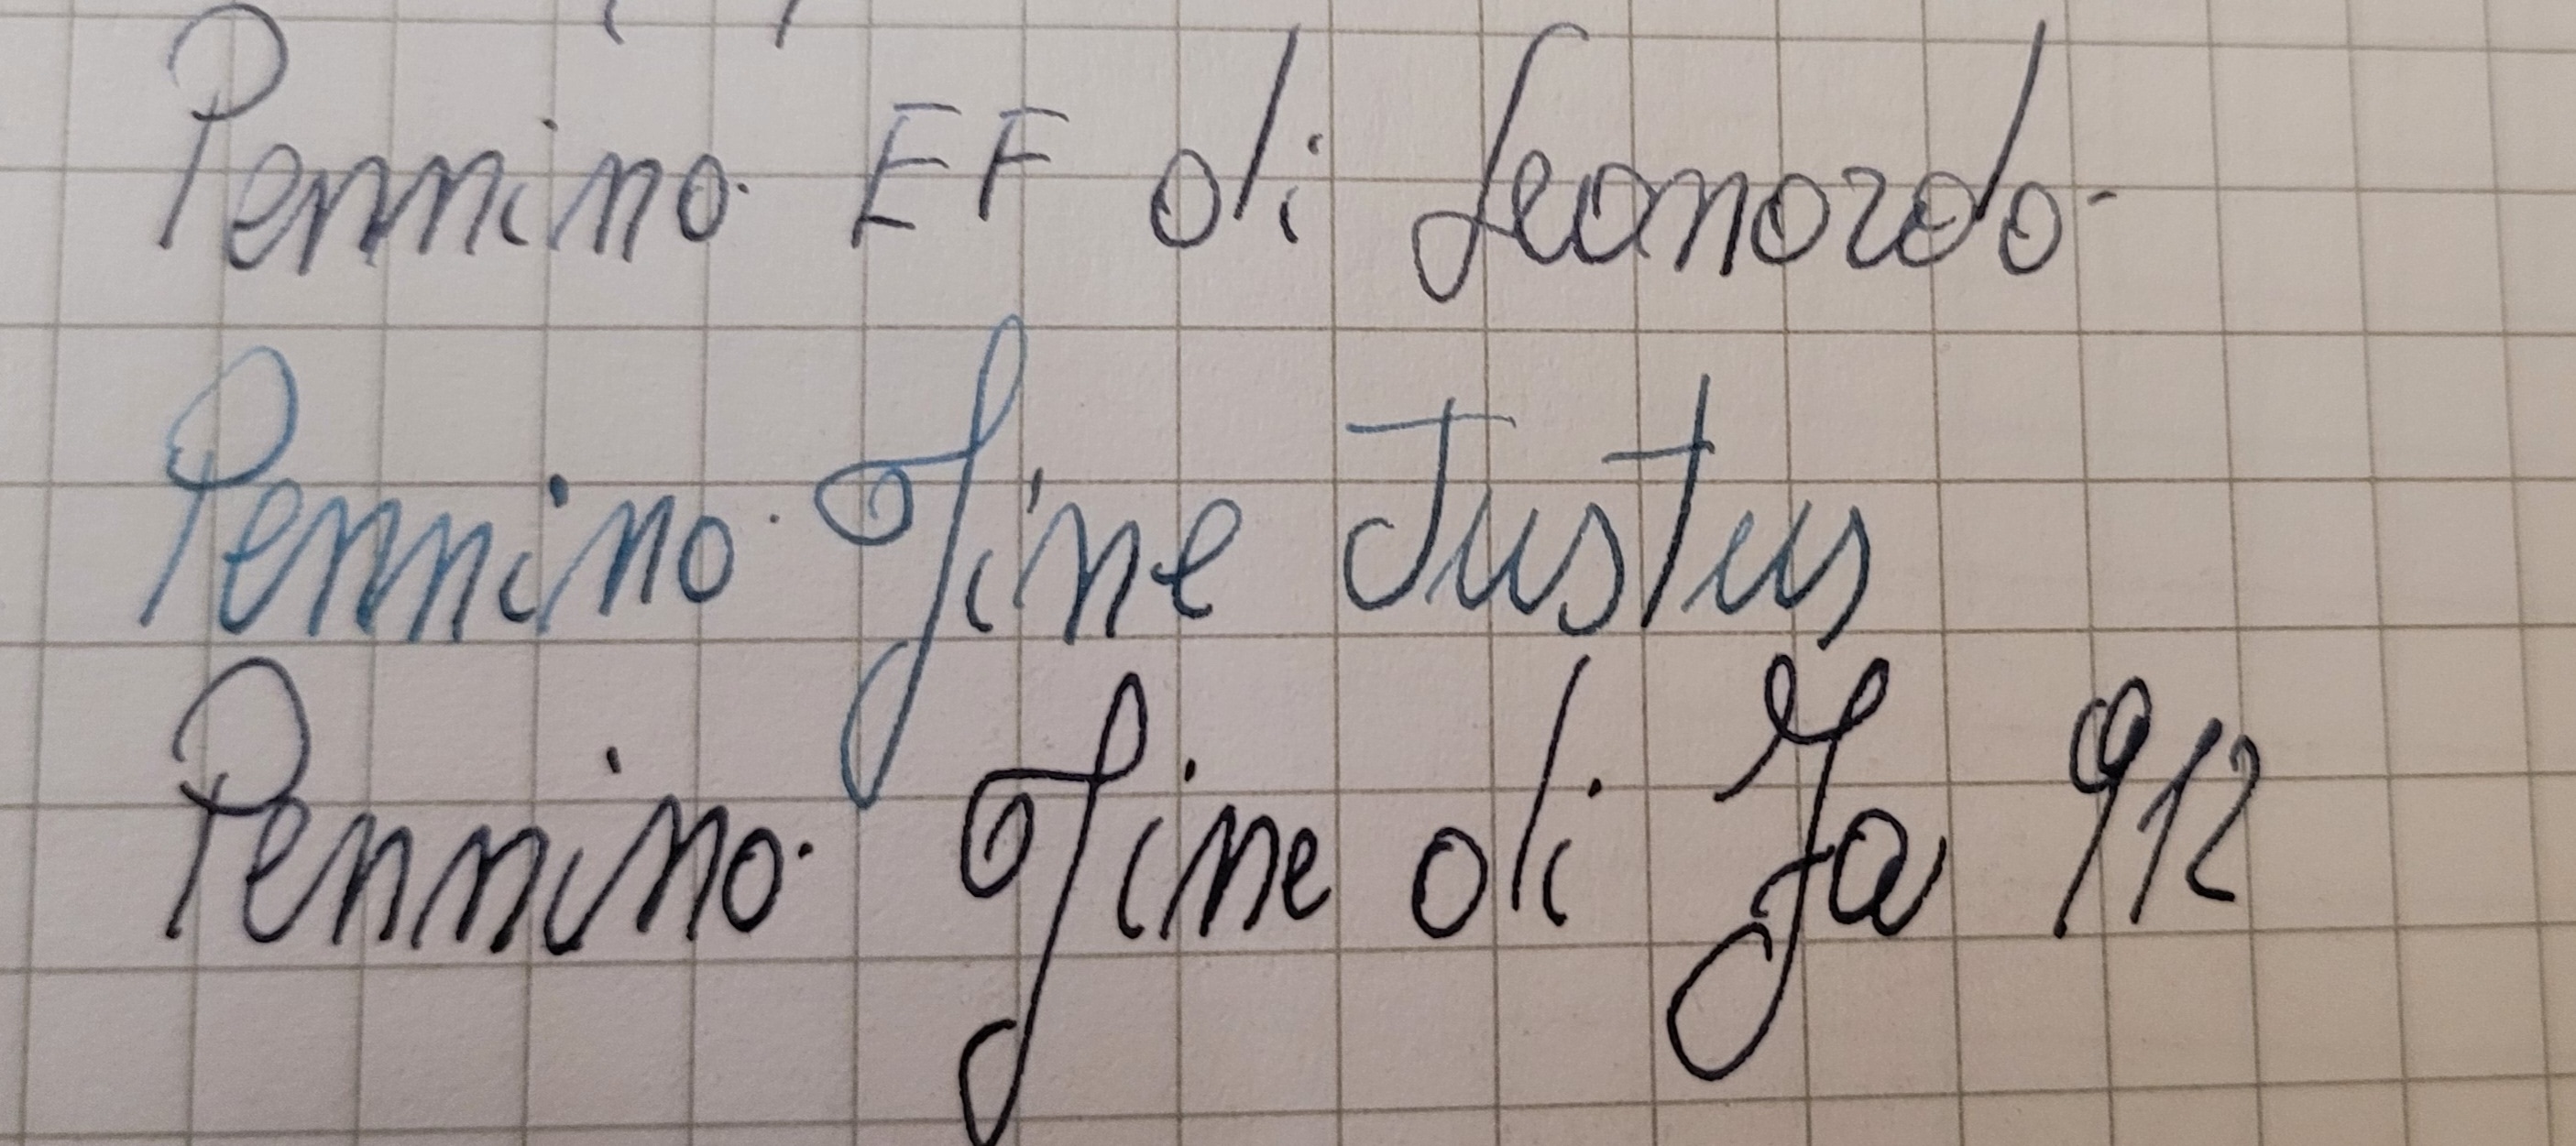 Pennino EF di Leonardo
Pennino Fine Justus
Pennino Fine di Fa 912